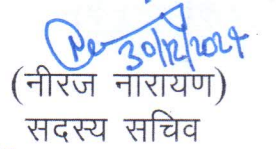 30/12/2024
(नीरज नारायण)
सदस्य सचिव